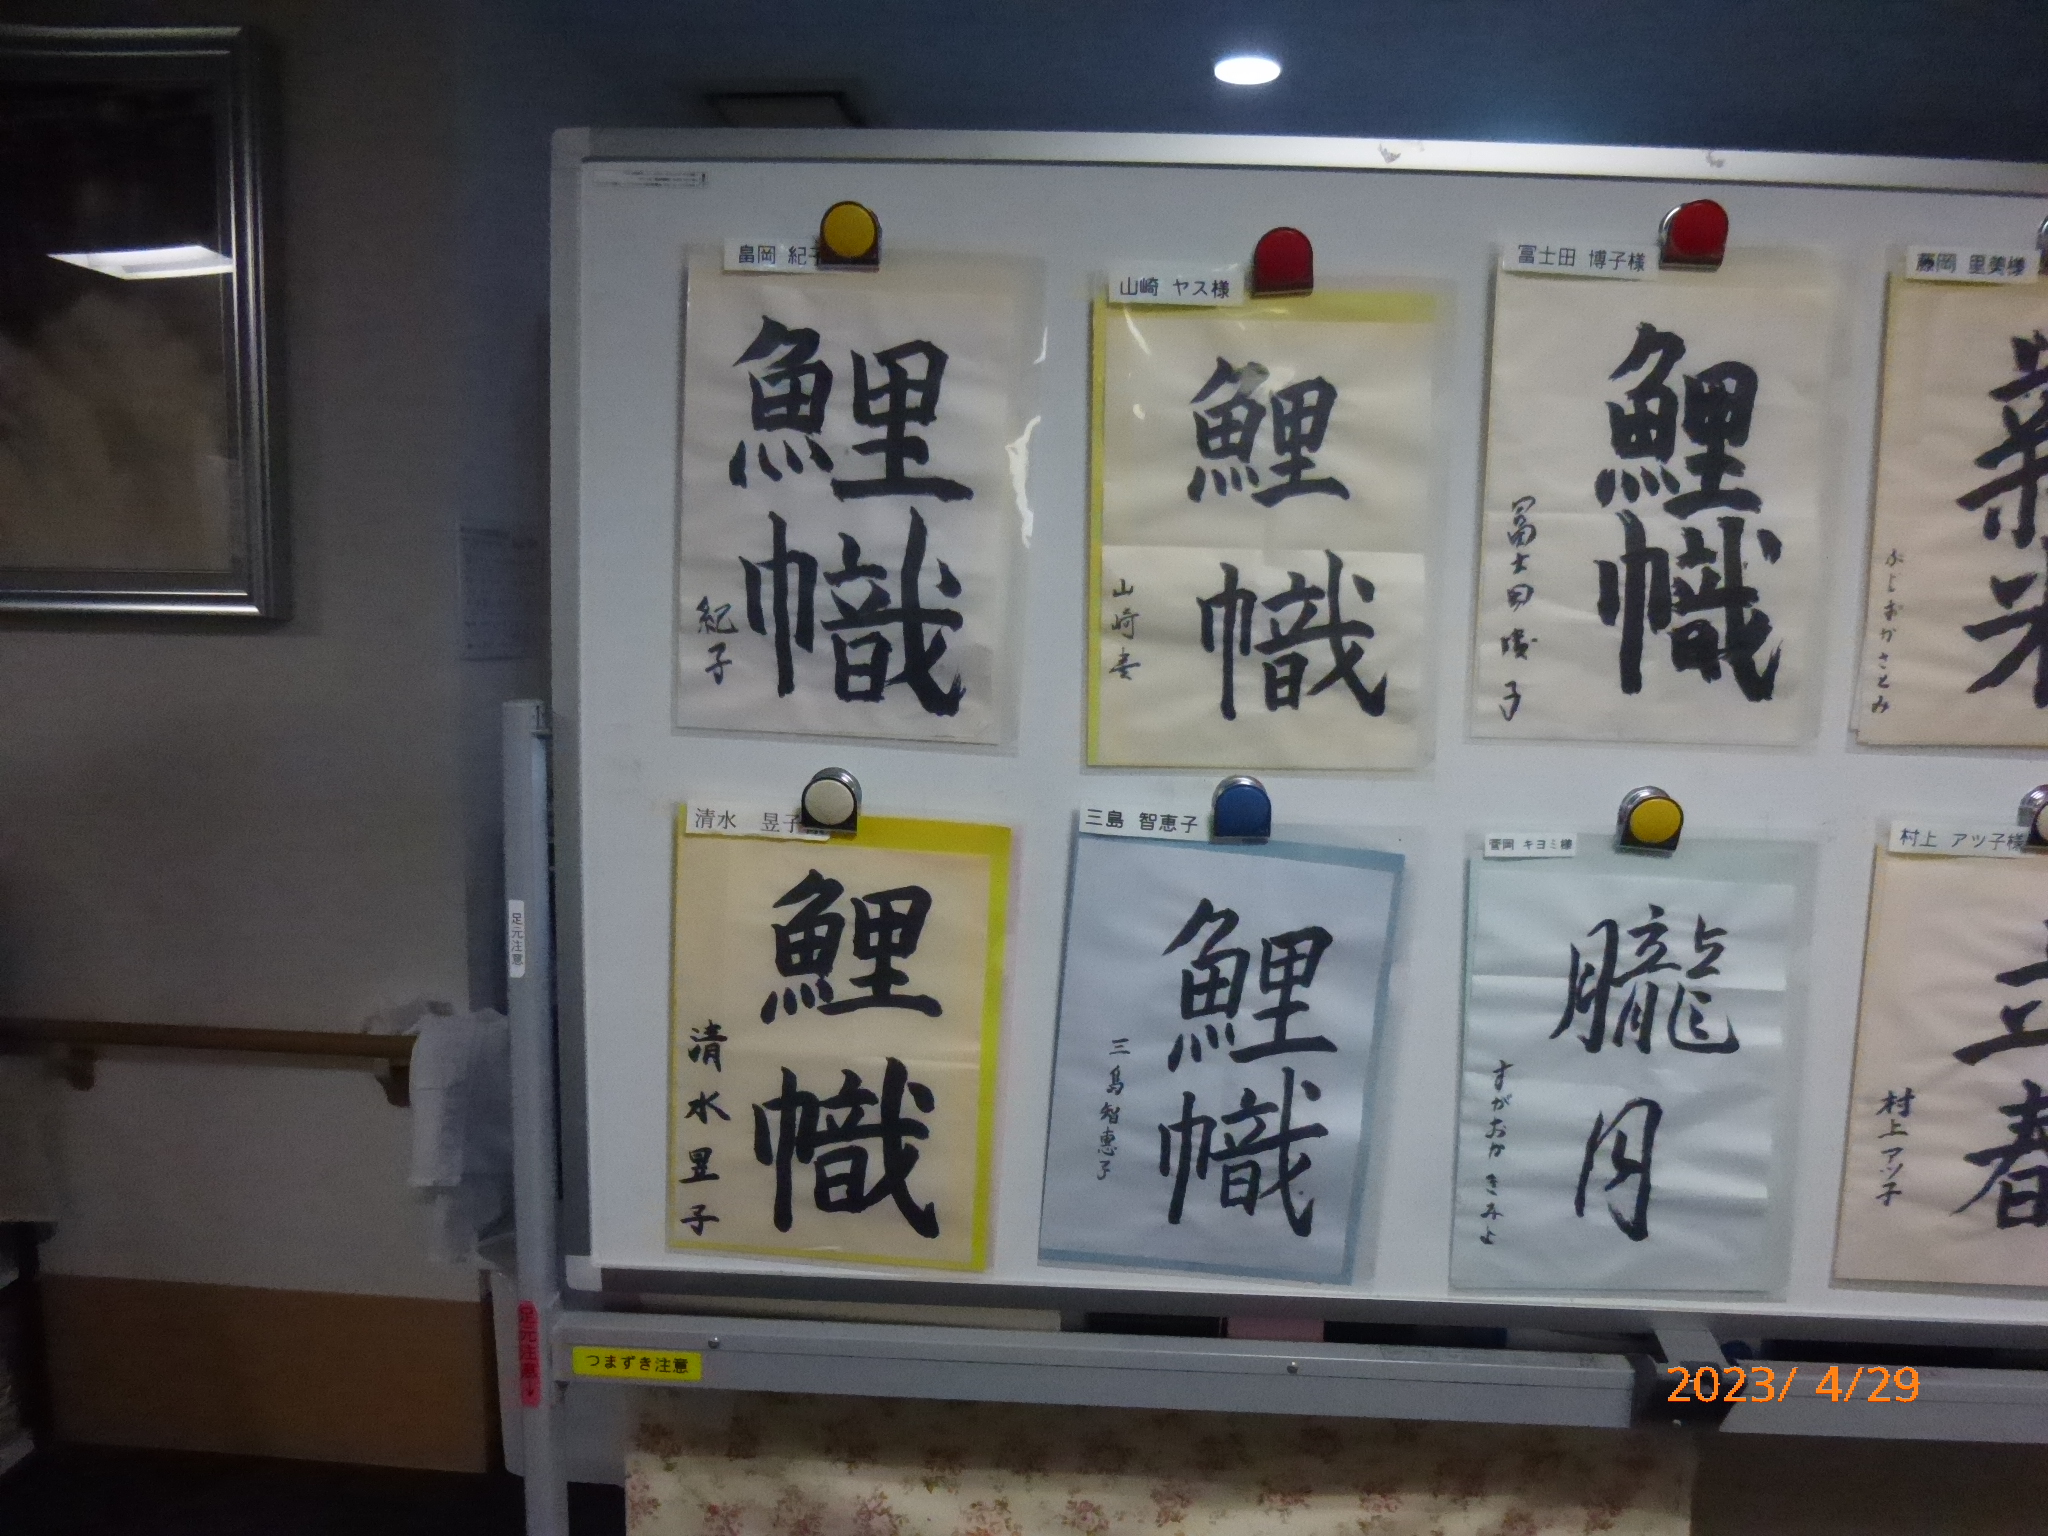 畠岡 紀子
鯉
幟
紀子
山崎 ヤス様
鯉
幟
山崎
冨士田 博子様
鯉
幟
冨士田
子
藤岡 里美様
菜
ふじおかさとみ
清水 昱子
鯉
幟
清水昱子
三島 智恵子
鯉
幟
三島智恵子
菅岡 キヨミ様
朧
月
すがおか きみよ
村上 アツ子様
立
春
村上アツ子
足元注意
足元注意
つまずき注意
2023/ 4/29